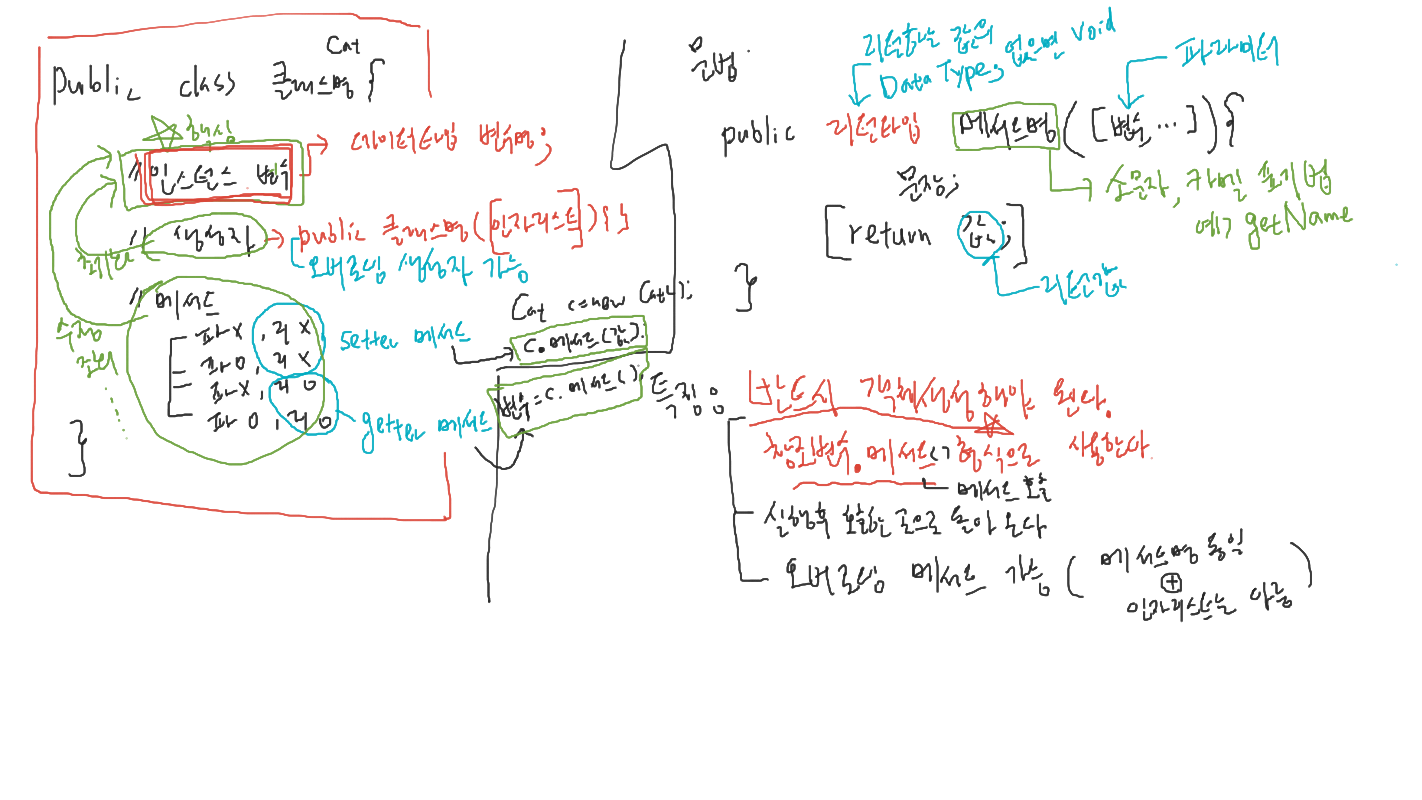 Cat
public class 클래스명 {
핵심
// 인스턴스 변수
데이터타입 변수명;
// 생성자
public 클래스명([인자리스트]){ }
초기화
오버로딩 생성자 가능
// 메서드
수정
파x, 리x
파o, 리x
파x, 리o
파o, 리o
setter 메서드
getter 메서드
}
Cat c=new Cat();
c.메서드(값);
변수=c.메서드();
문법:
리턴하는 값의
Data Type, 없으면 void
파라미터
public 리턴타입 메서드명([변수,...]){
문장;
[return 값;]
}
소문자, 카멜 표기법
예> getName
리턴값
특징:
반드시 객체생성해야 된다.
참조변수.메서드() 형식으로 사용한다.
메서드 호출
실행후 호출한 곳으로 돌아 온다
오버로딩 메서드 가능
(메서드명 동일
+
인자리스트는 다름)